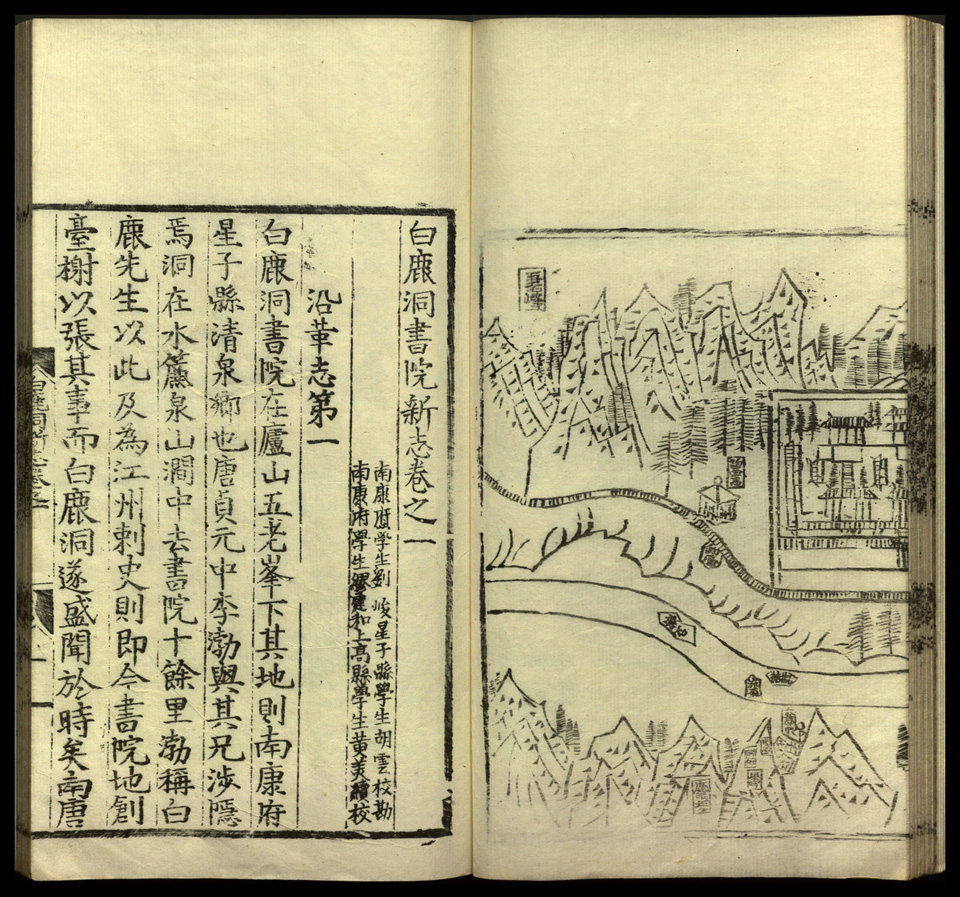 五老峰
白鹿洞書院新志卷之一
南康府学生劉峻星子縣學生胡雲校勘
南康府學生繆夏和上高縣學生黃羙校
沿革志第一
白鹿洞書院在廬山五老峯下其地則南康府
星子縣清泉鄉也唐貞元中李渤與其兄涉隱
焉洞在水簾泉山澗中去書院十餘里渤稱白
鹿先生以此及為江州刺史則即今書院地創
臺榭以張其事而白鹿洞遂盛聞於時矣南唐